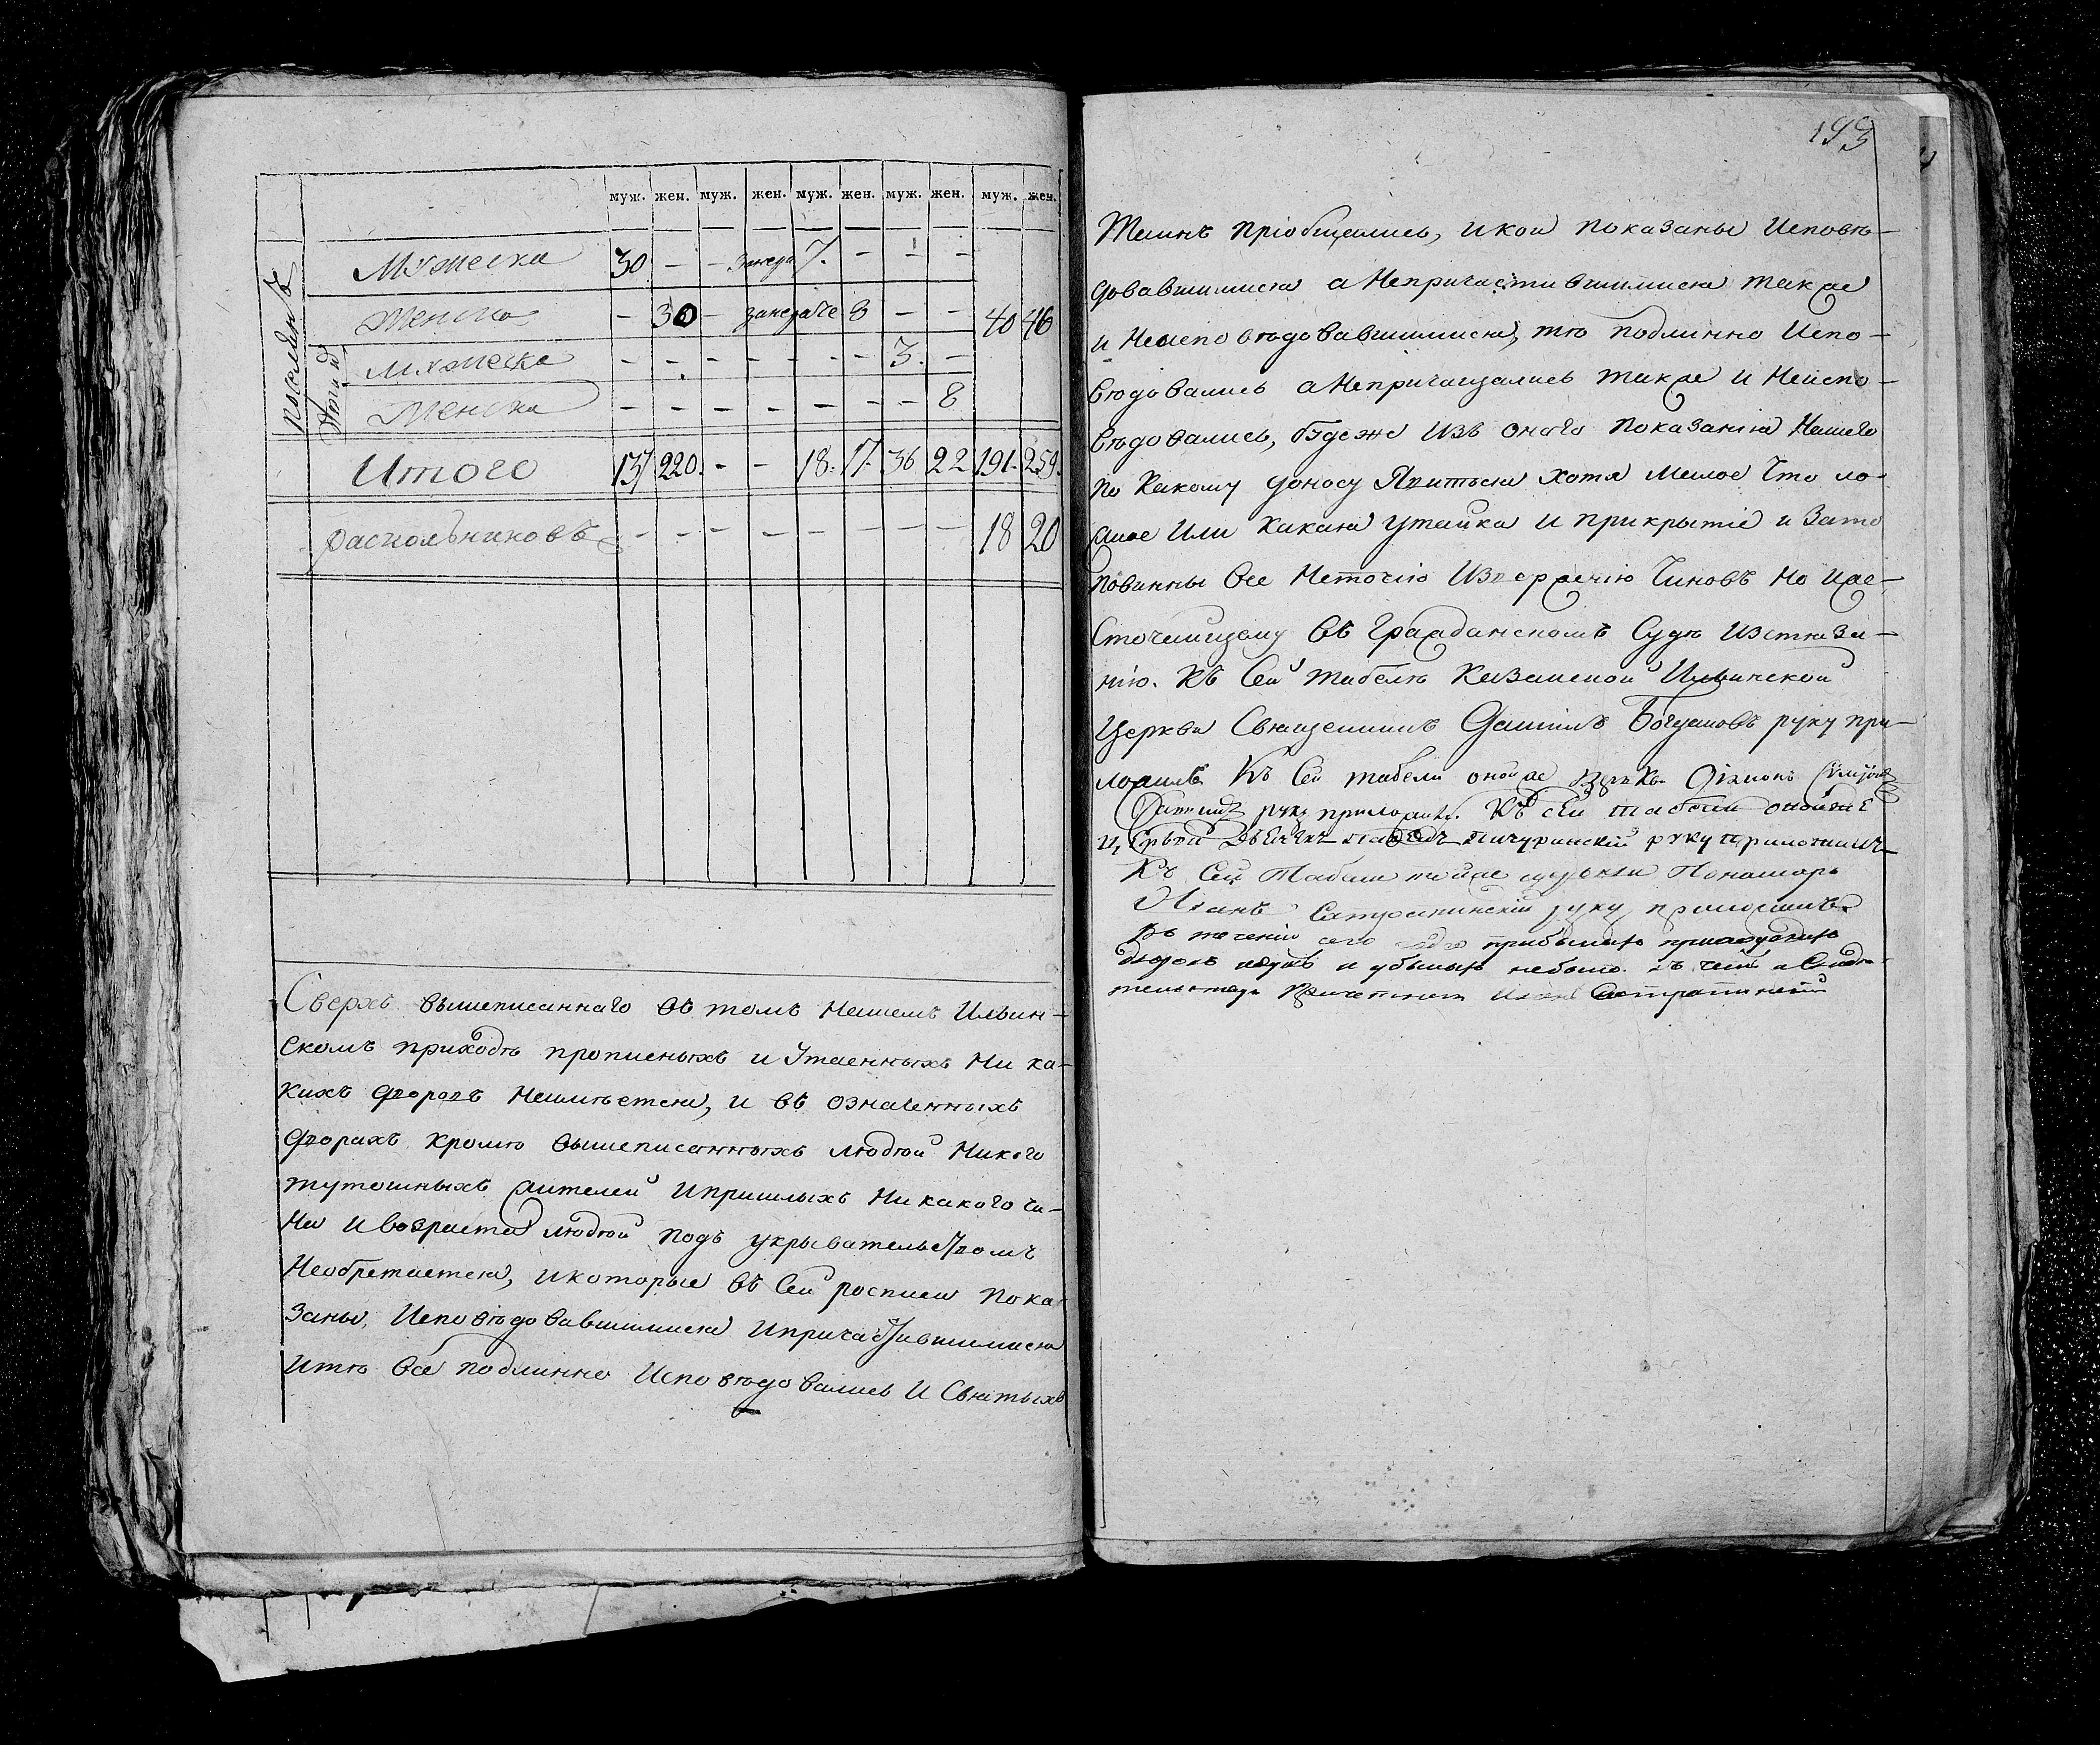 муж. жен. муж. жен. муж. жен. муж. жен. муж. жен.
Мужеска 30 - - 7. - - -
Женска - 30 - 8 - - 40 46
Мужеска - - - - - - 3. -
Женска - - - - - - - 8
Итого 137 220. - - 18. 17. 36 22 191. 259.
раскольниковъ - - - - - - - - 18 20
Сверхъ вышеписаннаго въ томъ нашемъ Ильин-
скомъ приходѣ прописныхъ и утаенныхъ ни ка-
кихъ дворовъ неимѣется, и въ означенныхъ
дворахъ кромѣ вышеписанныхъ людей никого
тутошныхъ жителей и пришлыхъ ни какого чи-
на и возраста людей подъ укрывательствомъ
необретается, и которые въ сей росписи пока-
заны исповѣдовавшимися и причастившимися
и тѣ все подлинно исповѣдовались и святыхъ
193
Таинъ пріобщались, и кои показаны исповѣ-
довавшимися а непричастившимися також
и неисповѣдовавшимися, тѣ подлинно испо-
вѣдовались а непричащались також и неиспо-
вѣдовались, буде же изъ онаго показанія нашего
по какому доносу явится хотя малое что ло-
жное или какая утайка и прикрытіе и зато
повинны все неточію извержению чиновъ но и же-
сточайшему въ гражданскомъ судѣ истяза-
нию. Къ сей табелѣ Ильинской
церкви священникъ Даніилъ Богдановъ руку при-
ложилъ Къ сей табели оной же
руку приложилъ. Къ сей табели оной же
церкви Пичуринский руку приложилъ
Къ сей табели той же церкви пономарь
Иванъ руку приложилъ
Въ теченіи сего года прибылыхъ
и убылыхъ небыло. въ чемъ и свидѣ-